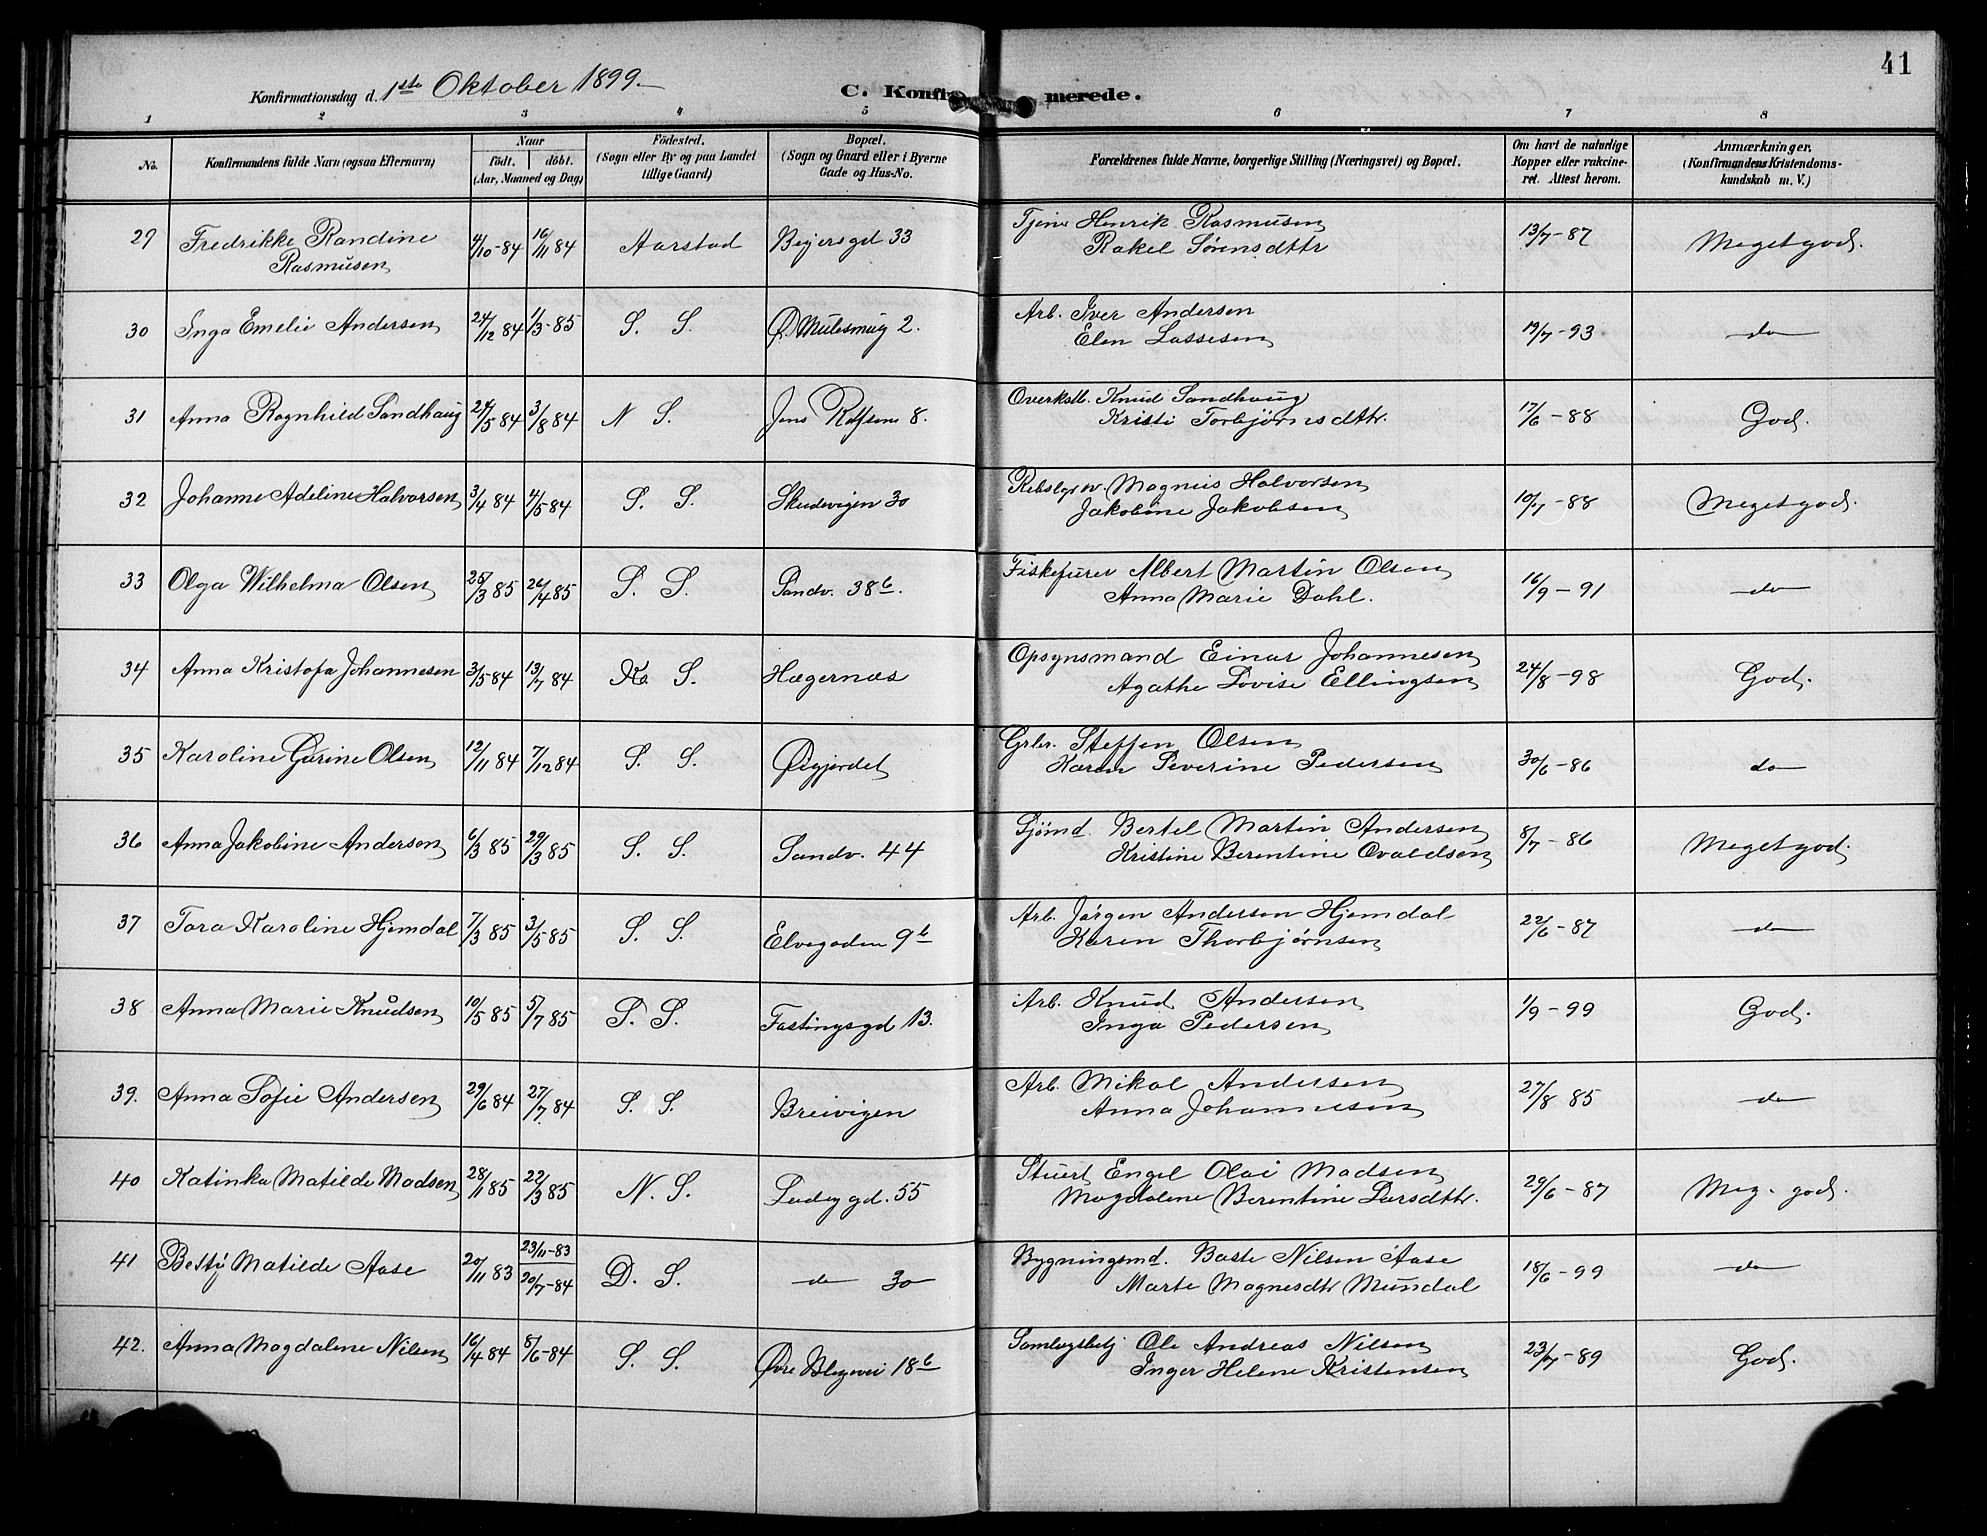 41
Konfirmationsdag d. 1ste Oktober 1899.
C. Konfirmerede.
1 2 3 4 5 6 7 8
No. Konfirmandens fulde Navn (ogsaa Efternavn) Naar født. døbt. (Aar, Maaned og Dag) Fødested. (Sogn eller By og paa Landet tillige Gaard) Bopæl. (Sogn og Gaard eller i Byerne Gade og Hus-No. Forældrenes fulde Navne, borgerlige Stilling (Næringsvei) og Bopæl. Om havt de naturlige Kopper eller vakcineret. Attest herom. Anmærkninger. (Konfirmandens Kristendomskundskab m. V.)
29 Fredrikke Randine 4/10-84 16/11 84 Aarstad Beyersgd 33 Tjener Henrik Rasmusen 13/7-87 Meget god.
Rasmusen Rakel Sørensdttr
30 Inga Emelie Andersen 24/12 84 1/3-85 S. S. Ø. Mulesmug 2. Arb. Iver Andersen 19/7-93 do
Elen Lassesen
31 Anna Ragnhild Sandhaug 24/5 84 3/8 84 N S. Jens Rolfsens 8. Overkstb. Knud Sandhaug 17/6-88 God.
Kristi Torbjørnsdttr.
32 Johanne Adeline Halvorsen 3/4 84 4/5 84 S. S. Skudevigen 30 Rebslgrsv. Magnus Halvorsen 10/7-88 Meget god.
Jakobine Jakobsen
33 Olga Wilhelma Olsen 25/3 85 26/4 85 S. S. Sandv. 38b. Fiskefører Albert Martin Olsen 16/9-91 do
Anna Marie Dahl.
34 Anna Kristofa Johannesen 3/5 84 13/7 84 Ko S. Hægernæs Opsynsmand Einar Johannesen 24/8-98 God.
Agathe Lovise Ellingsen
35 Karoline Gurine Olsen 12/11 84 7/12 84 S. S. Øigjordet Grbr. Steffen Olsen 30/6-86 do
Karen Severine Pedersen
36 Anna Jakobine Andersen 6/3 85 29/3 85 S. S. Sandv. 44 Sjømd. Bertel Martin Andersen 8/7-86 Meget god.
Kristine Berentine Ovaldsen
37 Tora Karoline Hjemdal 7/3 85 3/5 85 S. S. Elvegaden 9b Arb. Jørgen Andersen Hjemdal 22/6-87 do
Karen Thorbjørnsen
38 Anna Marie Knudsen 10/5 85 5/7 85 S. S. Fastingsgd 13. Arb. Knud Andersen 1/9-99 God.
Inga Pedersen
39. Anna Sofie Andersen 29/6 84 27/7 84 S. S. Breivigen Arb. Mikal Andersen 27/8 85 do
Anna Johannesen
40 Katinka Matilde Madsen 28/1 85 22/3 85 N. S. Ladeggd. 55 Stuert Engel Olai Madsen 29/6-87 Meg. god.
Magdalene Berentine Larsdttr.
41 Betty Matilde Aase 20/11 83 23/11-83 20/7-84 D. S. do 30 Bygningsmd. Baste Nilsen Aase 18/6-99 do
Marte Magnesdtr Mundal
42. Anna Magdalene Nilsen 16/4 84 8/6-84 S. S. Øvre Blegevei 18b Samlagsbetj Ole Andreas Nilsen 23/7-89 God.
Inger Helene Kristensen